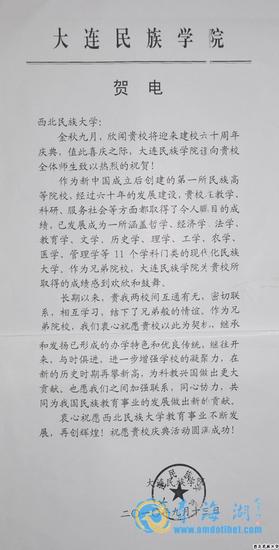 大连民族学院
贺 电
西北民族大学:
金秋九月，欣闻贵校将迎来建校六十周年
庆典，值此喜庆之际，大连民族学院谨向贵校
全体师生致以热烈的祝贺!
作为新中国成立后创建的第一所民族高
等院校，经过六十年的发展建设，贵校在教学、
科研、服务社会等方面都取得了令人瞩目的成
绩，已发展成为一所涵盖哲学、经济学、法学、
教育学、文学、历史学、理学、工学、农学、
医学、管理学等 11 个学科门类的现代化民族
大学。作为兄弟院校，大连民族学院为贵校所
取得的成绩感到欢欣和鼓舞。
长期以来，贵我两校间互通有无，密切联
系，相互学习，结下了兄弟般的情谊。作为兄
弟院校，我们衷心祝愿贵校以此为契机，继承
和发扬已形成的办学特色和优良传统，继往开
来，与时俱进，进一步增强学校的凝聚力，在新
的历史时期再攀新高，为科教兴国做出更大
贡献。也愿我们之间加强联系，同心协力，共
同为我国民族教育事业的发展做出新的贡献。
衷心祝愿西北民族大学教育事业不断发
展，再创辉煌! 祝愿贵校庆典活动圆满成功!
大连民族学院
二〇一〇年九月十三日
青海湖
www.amdotibet.com